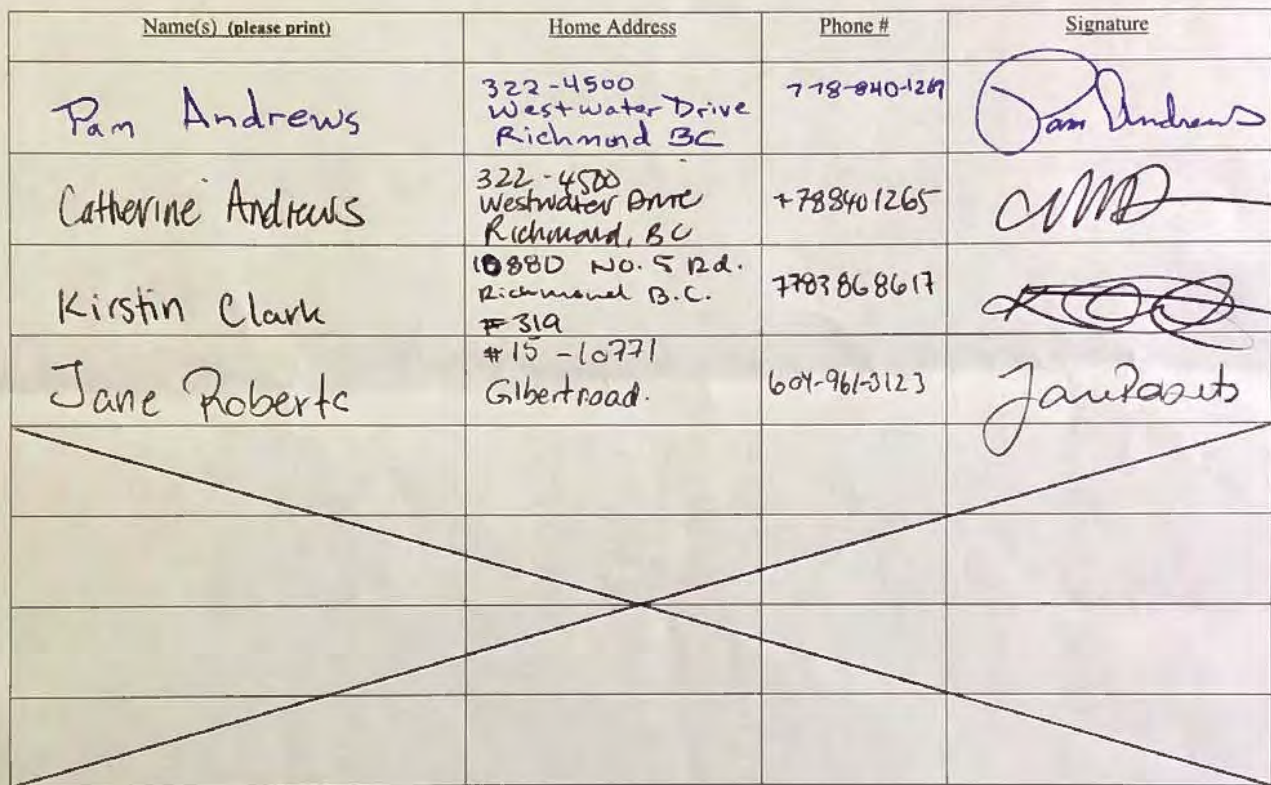 Name(s) (please print) Home Address Phone # Signature
Pam Andrews
322-4500
Westwater Drive
Richmond BC
Pam Andrews
Catherine Andrews
322-4500
Westwater Drive
Richmond, BC
+788401265
Kirstin Clark
10880 No. 5 Rd.
Richmond B.C.
#319
7783868617
Jane Roberts
#15-10771
Gilbert road.
604-961-3123
Jane Roberts